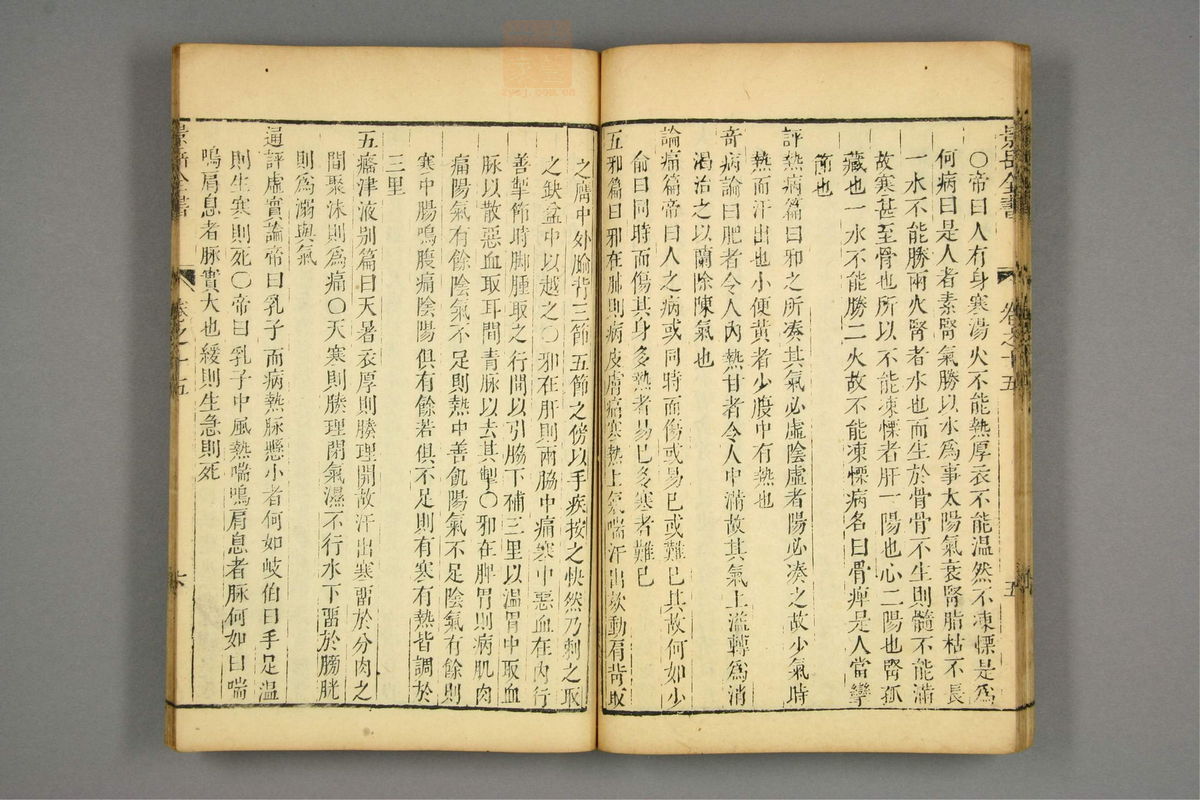 景岳全書
卷之十五
五
○帝曰人有身寒湯火不能熱厚衣不能温然不凍慄是爲
何病曰是人者素腎氣勝以水爲事太陽氣衰腎脂枯不長
一水不能勝兩火腎者水也而生於骨骨不生則髓不能滿
故寒甚至骨也所以不能凍慄者肝一陽也心二陽也腎孤
藏也一水不能勝二火故不能凍慄病名曰骨痺是人當攣
節也
評熱病篇曰邪之所凑其氣必虛陰虛者陽必凑之故少氣時
熱而汗出也小便黄者少腹中有熱也
奇病論曰肥者令人內熱甘者令人中滿故其氣上溢轉爲消
渴治之以蘭除陳氣也
論痛篇帝曰人之病或同時而傷或易已或難已其故何如少
俞曰同時而傷其身多熱者易已多寒者難已
五邪篇曰邪在肺則病皮膚痛寒熱上氣喘汗出欬動肩背取
之膺中外腧背三節五節之傍以手疾按之快然乃刺之取
之缺盆中以越之○邪在肝則兩脇中痛寒中惡血在內行
善掣節時脚腫取之行間以引脇下補三里以温胃中取血
脉以散惡血取耳間青脉以去其掣○邪在脾胃則病肌肉
痛陽氣有餘陰氣不足則熱中善飢陽氣不足陰氣有餘則
寒中腸鳴腹痛陰陽俱有餘若俱不足則有寒有熱皆調於
三里
五癃津液别篇曰天暑衣厚則腠理開故汗出寒畱於分肉之
間聚沫則爲痛○天寒則腠理閉氣濕不行水下畱於膀胱
則爲溺與氣
通評虛實論帝曰乳子而病熱脉懸小者何如岐伯曰手足温
則生寒則死○帝曰乳子中風熱喘鳴肩息者脉何如曰喘
鳴肩息者脉實大也緩則生急則死
景岳全書
卷之十五
六